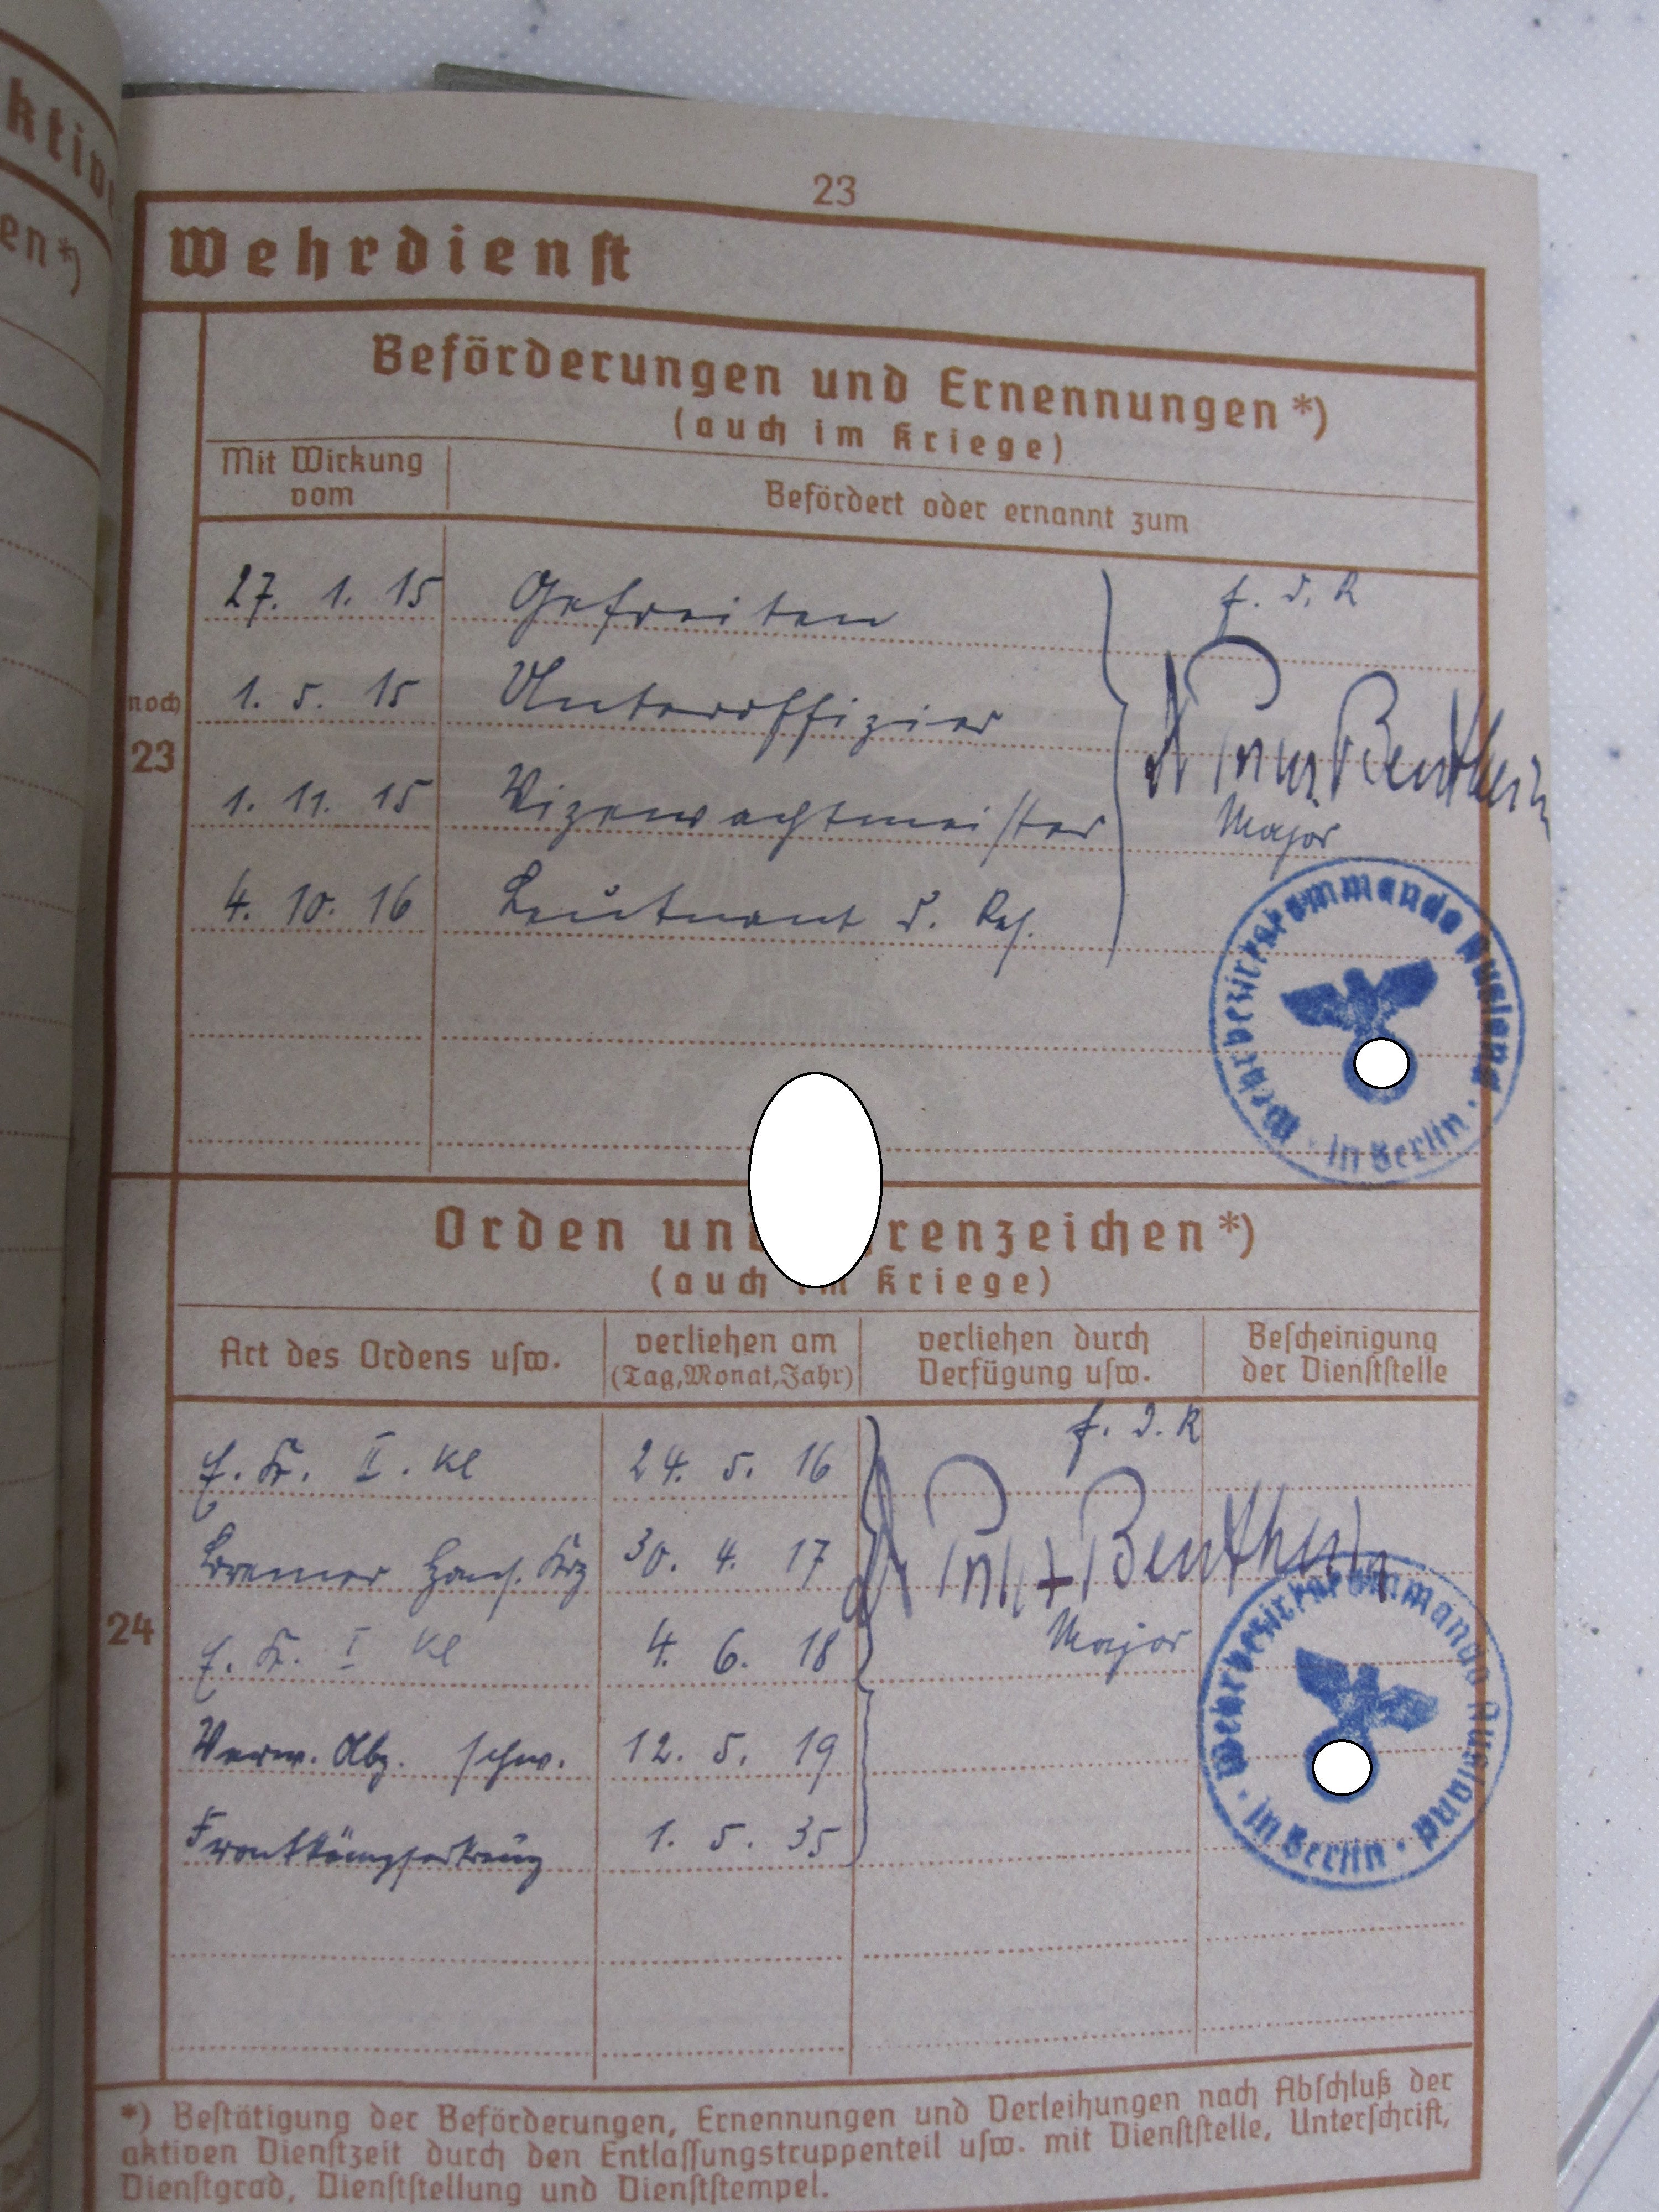 ktive
en*)
23
Wehrdienst
Beförderungen und Ernennungen*)
(auch im Kriege)
Mit Wirkung
vom
Befördert oder ernannt zum
27. 1. 15 Gefreiten f. d. R
noch
23
1. 5. 15 Unteroffizier
Prinz Bentheim
1. 11. 15 Vizewachtmeister Major
4. 10. 16 Leutnant d. Res.
Wehrbezirkskommando Ausland · in Berlin ·
Orden und renzeichen*)
(auch im Kriege)
Art des Ordens usw.
verliehen am
(Tag, Monat, Jahr)
verliehen durch
Verfügung usw.
Bescheinigung
der Dienststelle
24
E. K. II. Kl 24. 5. 16 f. d. R
Bremer Hans. Krz 30. 4. 17 Prinz Bentheim
E. K. I Kl 4. 6. 18 Major
Verw. Abz. schw. 12. 5. 19
Frontkämpferkreuz 1. 5. 35
Wehrbezirkskommando Ausland · in Berlin ·
*) Bestätigung der Beförderungen, Ernennungen und Verleihungen nach Abschluß der
aktiven Dienstzeit durch den Entlassungstruppenteil usw. mit Dienststelle, Unterschrift,
Dienstgrad, Dienststellung und Dienststempel.